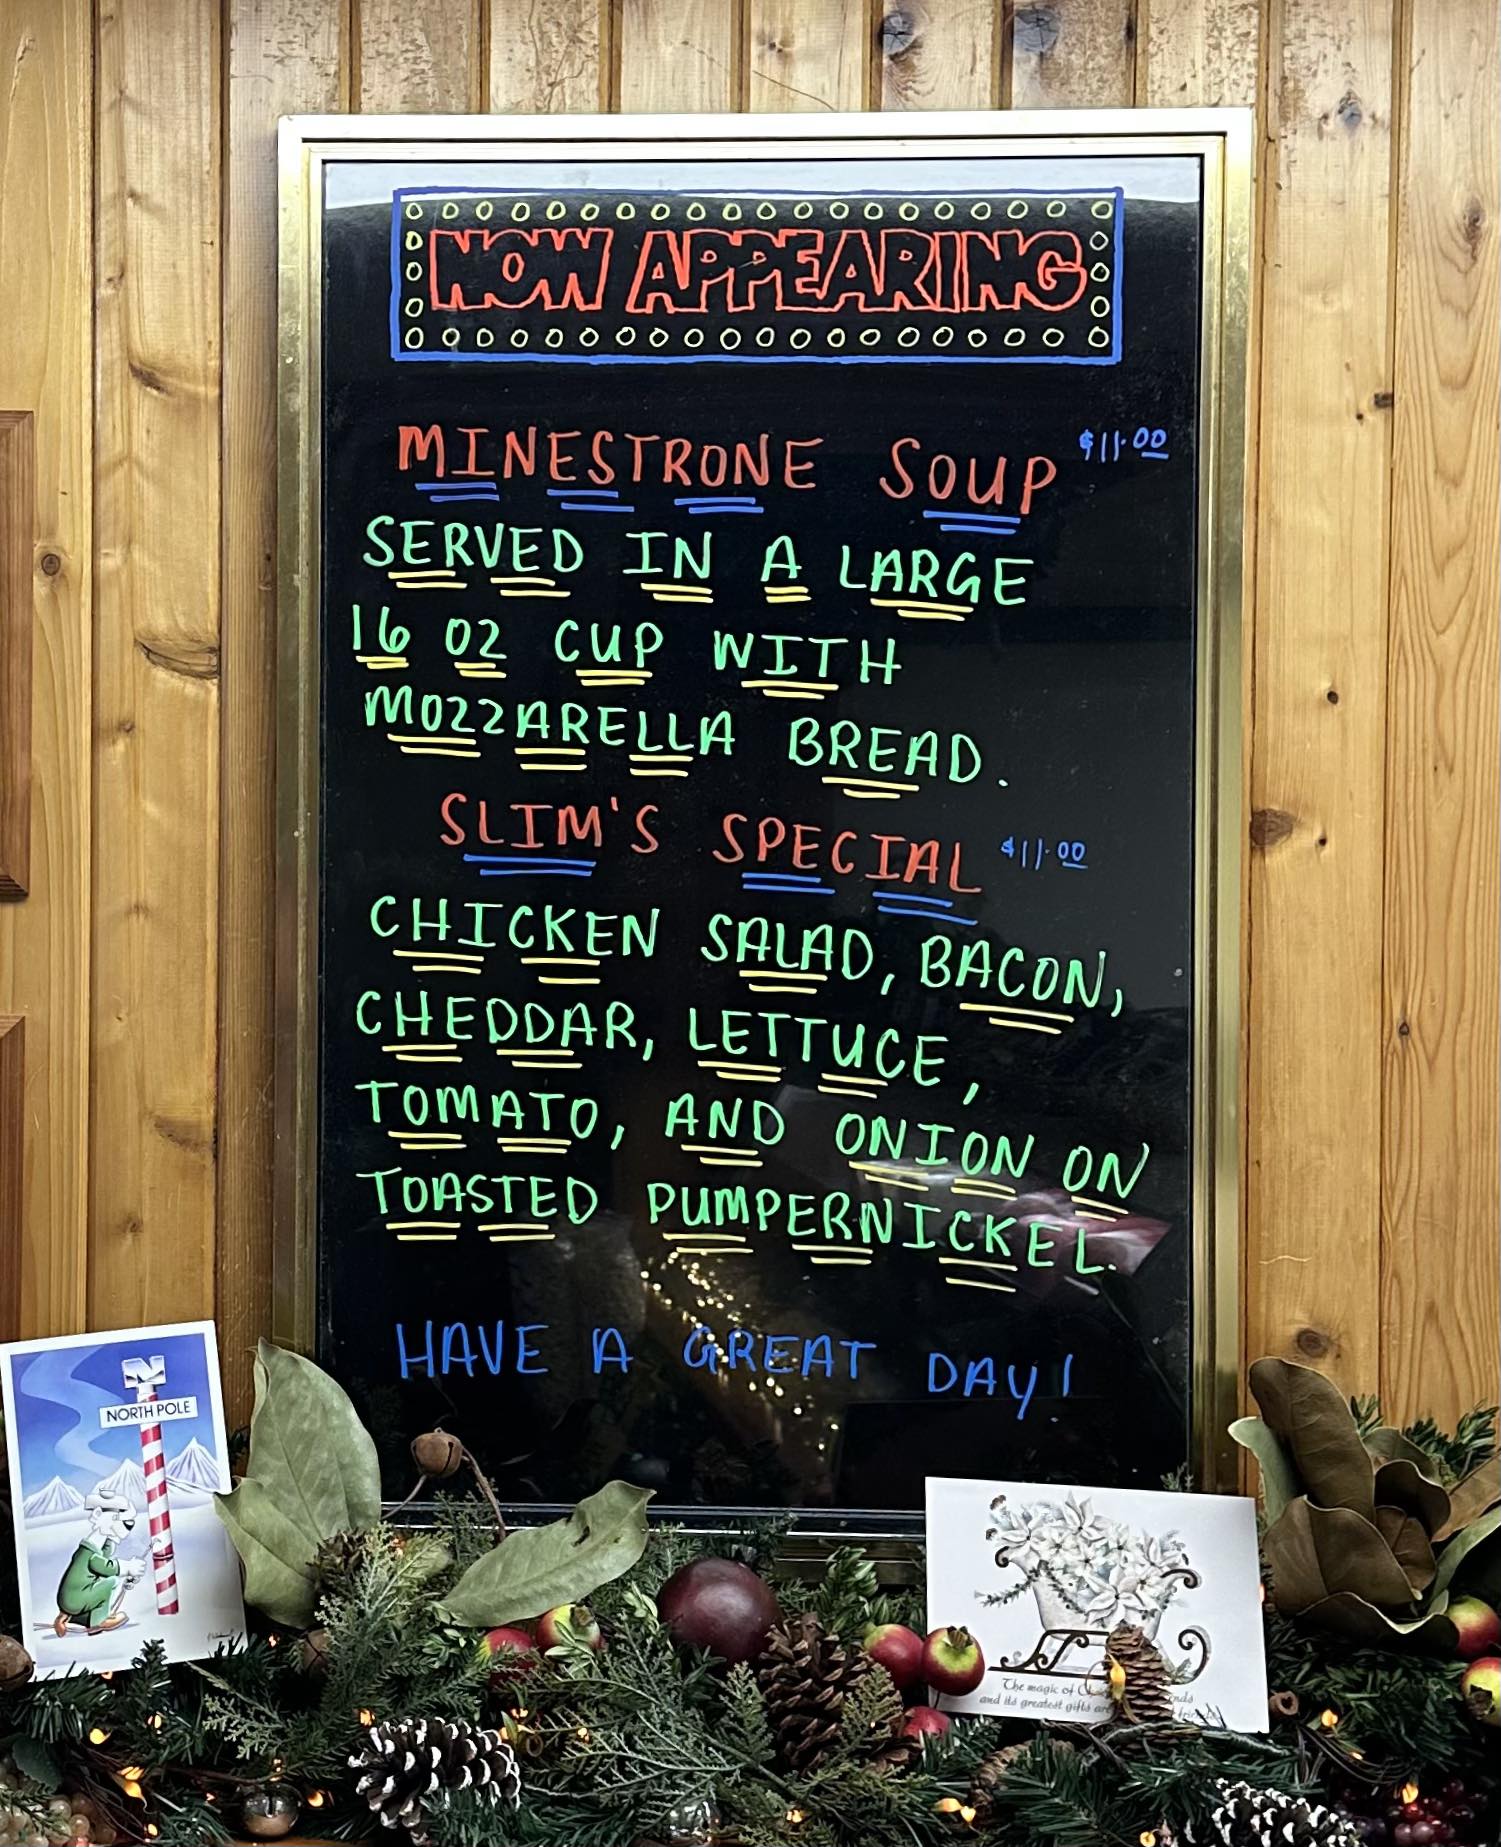 NOW APPEARING
MINESTRONE SOUP $11.00
SERVED IN A LARGE
16 OZ CUP WITH
MOZZARELLA BREAD.
SLIM'S SPECIAL $11.00
CHICKEN SALAD, BACON,
CHEDDAR, LETTUCE,
TOMATO, AND ONION ON
TOASTED PUMPERNICKEL.
HAVE A GREAT DAY!
N
NORTH POLE
The magic of
and its greatest gifts are